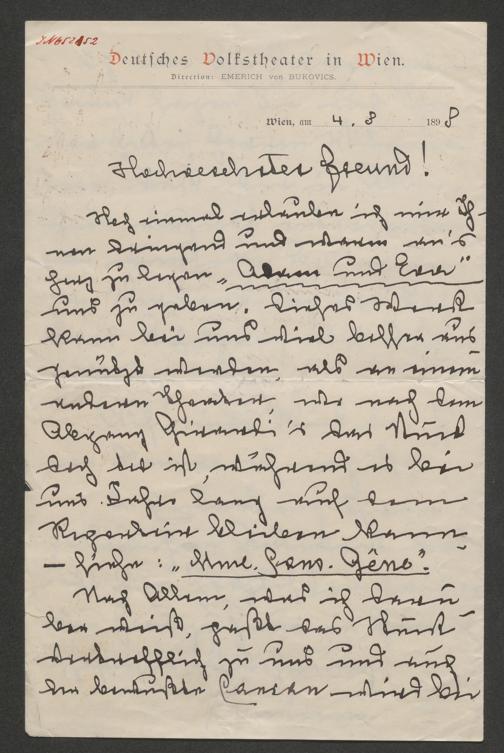 Deutsches Volkstheater in Wien.
Direction: EMERICH von BUKOVICS.
Wien, am 4. 3 1898
Hochverehrter Freund!
Noch einmal erlauben ich mir Ih-
nen dringend und warm an's
Herz zu legen „Adam und Eva"
uns zu geben. Dieses Werk
kann bei uns viel besser aus
genützt werden, als an einem
andern Theater, wo nach dem
Abgang Girardi's das Stück
doch tot ist, während es bei
uns Jahre lang auf dem
Repertoir bleiben kann
– siehe: „Mme. Sans. Gêne".
Nach Allem, was ich darü
ber weiß, paßt das Stück
vortrefflich zu uns und auch
der bewußte Cancan wird bei